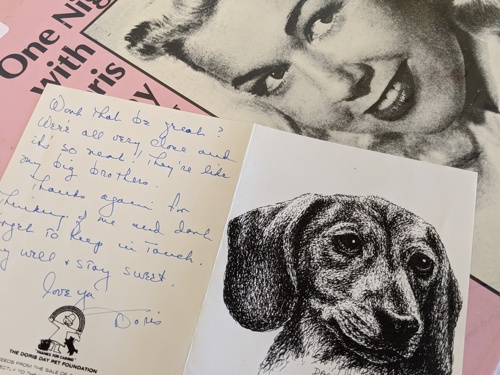 One Nig
with
ris
y
Won't that be great?
We're all very close and
it's so neat! They're like
my big brothers.
Thanks again for
thinking of me and don't
rget to keep in touch.
y well & stay sweet.
love ya
Doris
THANKS FOR CARING
THE DORIS DAY PET FOUNDATION
EEDS FROM THE SALE OF
ECTLY TO THE
DA